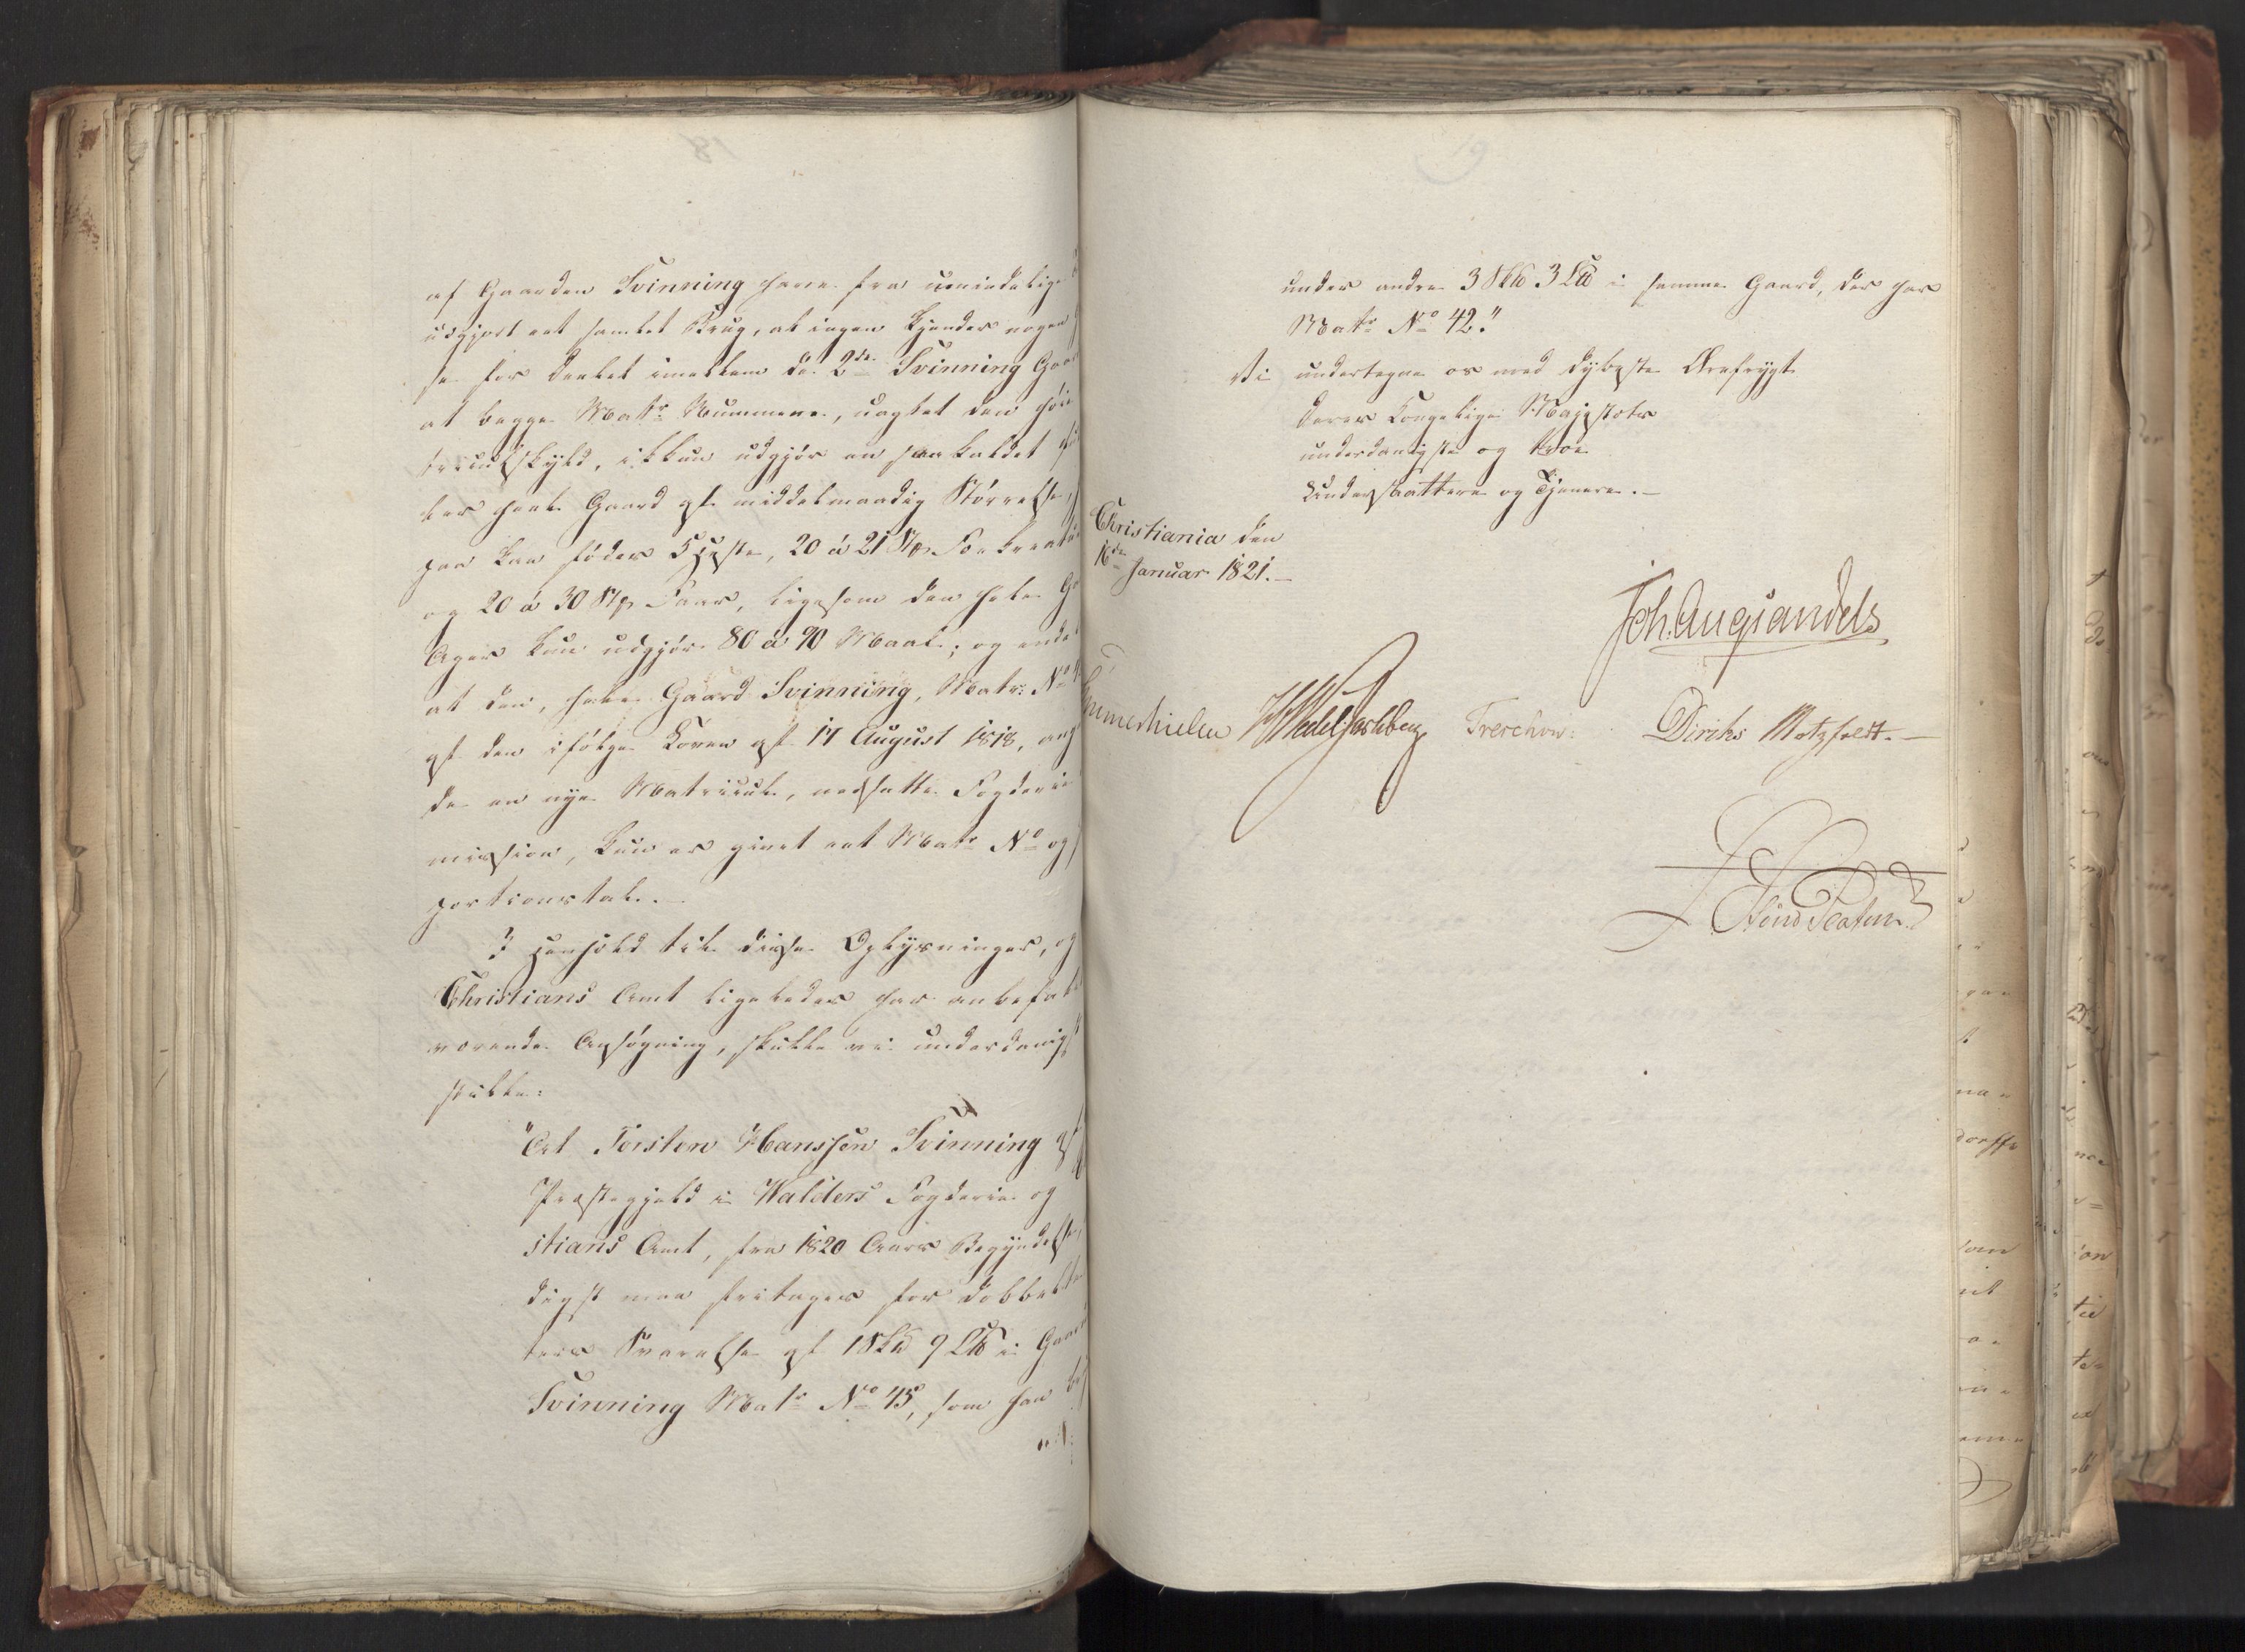 af Gaarden Tvinning have fra umindelige
udgjort eet samlet Brug, at ingen kjender nogen
for Deelet imellem de 2de Tvinning
at begge Matr: Nummere, uagtet den
skyld, ikkun udgjør en saakaldet
Gaard af middelmaadig Størrelse,
paa kan födes 5 Heste, 20 á 21 Stkr
og 20 á 30 Stkr Faar, ligesom den hele
Ager kun udgjör 80 á 90 Maal; og
at den hele Gaard Tvinning, Matr: No
af den ifölge Loven af 17 August 1818,
de en nye Matricul, nedsatte Fogderie
mission, kun er givet eet Matr No og
portionstal.
I Henhold til disse Oplysninger, og
Christians Amt ligeledes har
værende Ansögning, skulle vi underdanigst
stille:
"At Torsten Hanssen Tvinning af
Præstegjeld i Walders Fogderie og
stians Amt, fra 1820 Aars Begyndelse,
digst maa fritages for dobbelt
Svarelse af 1 Sk℔ 9 L℔ i
Tvinning Matr No 45, som han
under andre 3 Sk℔ 3 L℔ i samme Gaard, der har
Matr No 42."
Vi undertegne os med dybeste Ærefrygt
Deres Kongelige Majestæts
underdanigste og troe
Undersaattere og Tjenere.—
Christiania den
16de Januar 1821.—
Joh. Aug Sandels
Sommerhielm Wedel Jarlsberg Treschow. Diriks Motzfeldt.—